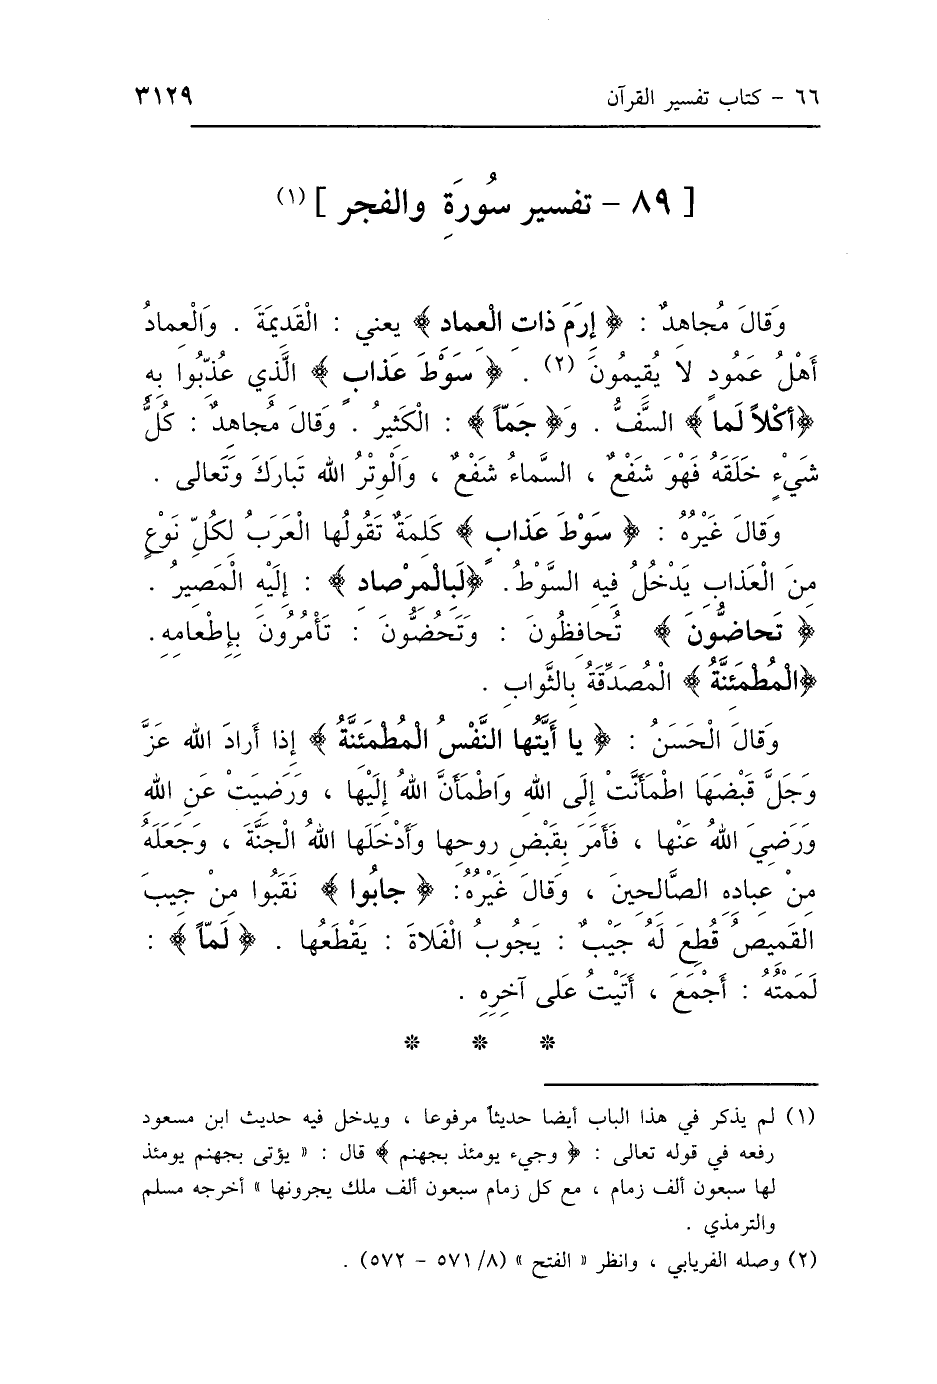 ٦٦ - كتاب تفسير القرآن ٣١٢٩
[ ٨٩ - تفسير سُورَةِ والفجر ] (١)
وَقالَ مُجاهِدٌ : ﴿ إِرَمَ ذاتِ الْعِمادِ ﴾ يعني : الْقَدِيمَةَ . وَالْعِمادُ
أَهْلُ عَمُودٍ لا يُقِيمُونَ (٢) . ﴿ سَوْطَ عَذابٍ ﴾ الَّذِي عُذِّبُوا بِهِ
﴿أَكْلاً لَمّاً ﴾ السَّفُّ . وَ﴿ جَمّاً ﴾ : الْكَثِيرُ . وَقالَ مُجاهِدٌ : كُلُّ
شَيْءٍ خَلَقَهُ فَهْوَ شَفْعٌ ، السَّماءُ شَفْعٌ ، وَالْوِتْرُ الله تَبارَكَ وَتَعالى .
وَقالَ غَيْرُهُ : ﴿ سَوْطَ عَذابٍ ﴾ كَلِمَةٌ تَقُولُها الْعَرَبُ لِكُلِّ نَوْعٍ
مِنَ الْعَذابِ يَدْخُلُ فِيهِ السَّوْطُ. ﴿لَبِالْمِرْصادِ ﴾ : إِلَيْهِ الْمَصِيرُ .
﴿ تَحاضُّونَ ﴾ تُحافِظُونَ : وَتَحُضُّونَ : تَأْمُرُونَ بِإِطْعامِهِ.
﴿الْمُطْمَئِنَّةُ ﴾ الْمُصَدِّقَةُ بِالثَّوابِ .
وَقالَ الْحَسَنُ : ﴿ يا أَيَّتُها النَّفْسُ الْمُطْمَئِنَّةُ ﴾ إِذا أَرادَ الله عَزَّ
وَجَلَّ قَبْضَهَا اطْمَأَنَّتْ إِلَى الله وَاطْمَأَنَّ اللهُ إِلَيْها ، وَرَضِيَتْ عَنِ اللهِ
وَرَضِيَ اللهُ عَنْها ، فَأَمَرَ بِقَبْضِ رُوحِها وَأَدْخَلَها اللهُ الْجَنَّةَ ، وَجَعَلَهُ
مِنْ عِبادِهِ الصَّالِحِينَ ، وَقالَ غَيْرُهُ: ﴿ جابُوا ﴾ نَقَبُوا مِنْ جِيبَ
القَمِيصُ قُطِعَ لَهُ جَيْبٌ : يَجُوبُ الْفَلاةَ : يَقْطَعُها . ﴿ لَمّاً ﴾ :
لَمَمْتُهُ : أَجْمَعَ ، أَتَيْتُ عَلى آخِرِهِ .
* * *
(١) لم يذكر في هذا الباب أيضا حديثاً مرفوعا ، ويدخل فيه حديث ابن مسعود
رفعه في قوله تعالى : ﴿ وجيء يومئذ بجهنم ﴾ قال : « يؤتى بجهنم يومئذ
لها سبعون ألف زمام ، مع كل زمام سبعون ألف ملك يجرونها » أخرجه مسلم
والترمذي .
(٢) وصله الفريابي ، وانظر « الفتح » (٨/ ٥٧١ - ٥٧٢) .